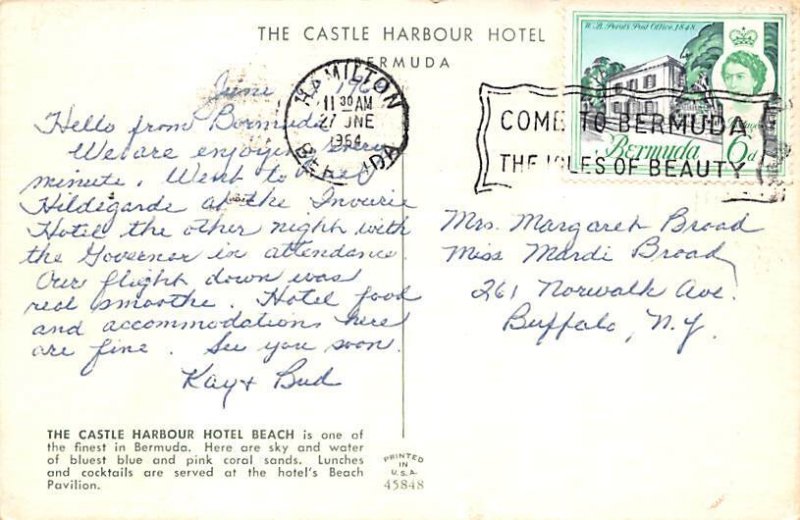 THE CASTLE HARBOUR HOTEL
BERMUDA
W. B. Perot's Post Office, 1848
Bermuda
6d
HAMILTON
11 30 AM
27 JNE
1964
BERMUDA
COME TO BERMUDA
THE ISLES OF BEAUTY
June
Hello from Bermuda
We are enjoying every
minute. Went to hear
Hildegarde at the Inverie
Hotel the other night with
the Governor in attendance.
Our flight down was
real smoothe. Hotel food
and accommodations here
are fine. See you soon.
Kay + Bud
Mrs. Margaret Broad
Miss Mardi Broad
261 Norwalk Ave.
Buffalo, N.Y.
THE CASTLE HARBOUR HOTEL BEACH is one of
the finest in Bermuda. Here are sky and water
of bluest blue and pink coral sands. Lunches
and cocktails are served at the hotel's Beach
Pavilion.
PRINTED
IN
U.S.A.
45848